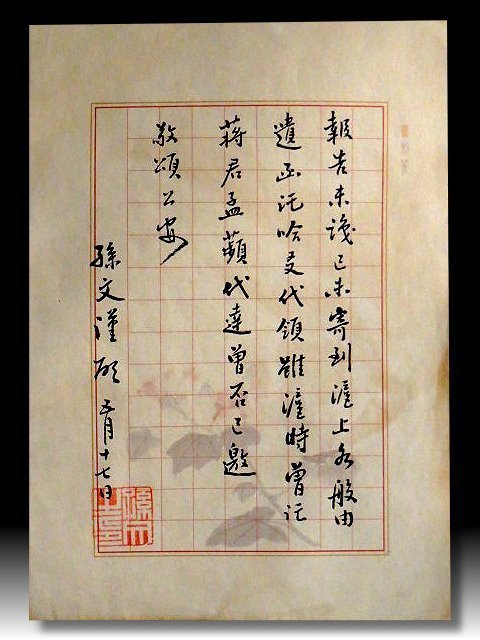 報告未識已未寄到滬上各般由
遺函託哈叟代領雖滬時曾託
蔣君孟蘋代達曾否已邀
敬頌公安
孫文謹啟 五月十七日
孫文之印